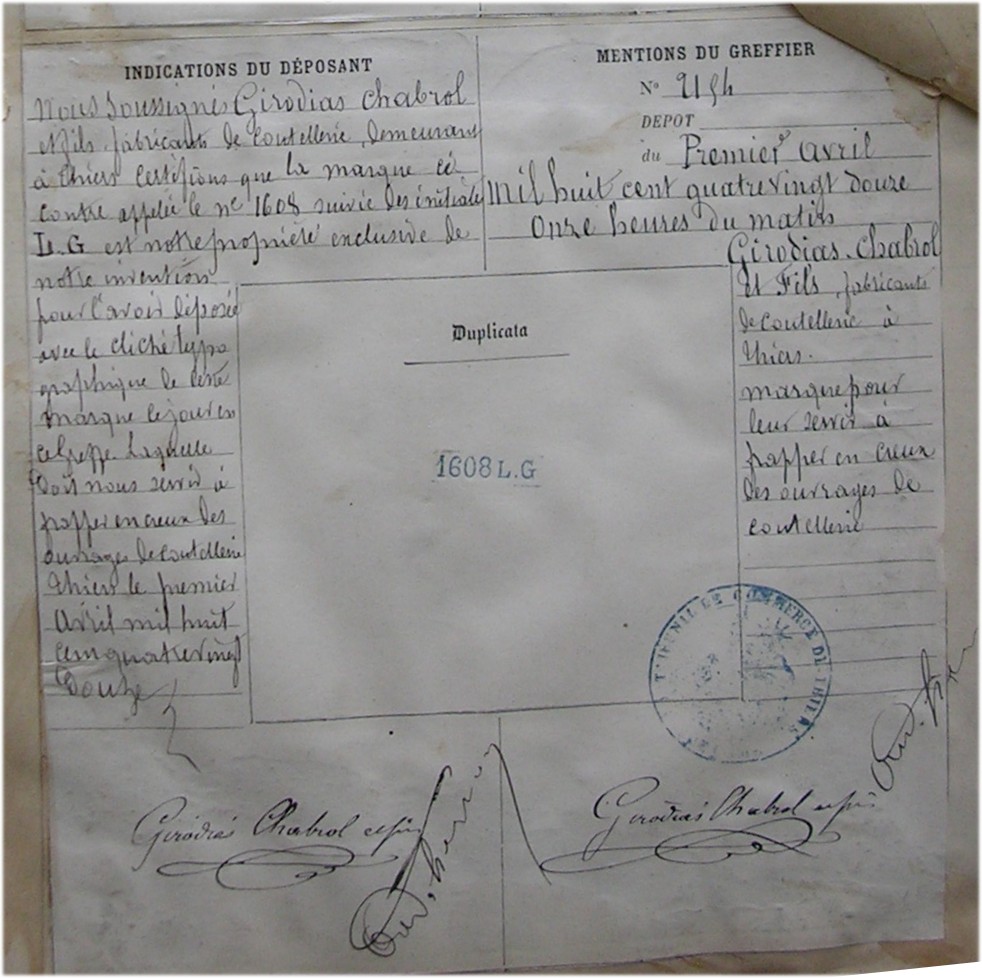 INDICATIONS DU DÉPOSANT
Nous soussignés Girodias Chabrol
et fils, fabricants de coutellerie, demeurant
à Thiers certifions que la marque ci
contre appelée le nº 1608 suivie des initiales
L.G est notre propriété exclusive de
notre invention
pour l'avoir déposée
avec le cliché typo
graphique de cette
marque ce jour en
ce Greffe. Laquelle
doit nous servir à
frapper en creux des
ouvrages de coutellerie
Thiers le premier
avril mil huit
cent quatre vingt
douze
MENTIONS DU GREFFIER
Nº
DEPOT
du Premier avril
mil huit cent quatre vingt douze
onze heures du matin
Girodias-Chabrol
et Fils, fabricants
de coutellerie à
Thiers.
marque pour
leur servir à
frapper en creux
des ouvrages de
coutellerie
Duplicata
1608 L.G
TRIBUNAL DE COMMERCE DE THIERS
Girodias Chabrol et fils
Girodias Chabrol et fils